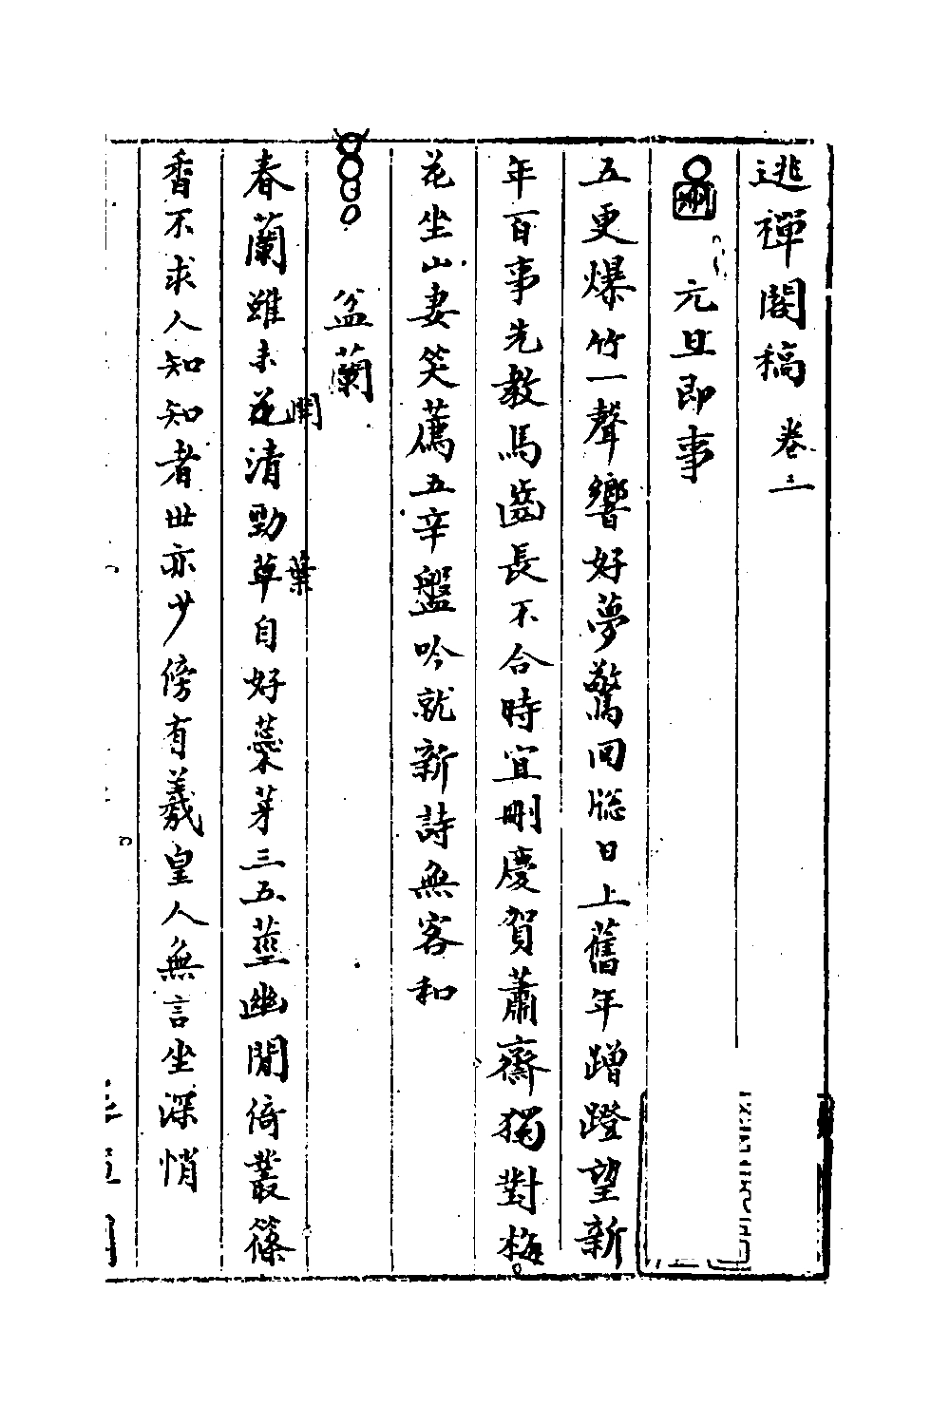 逃禪閣稿 卷二
刪 元旦即事
五更爆竹一聲響好夢驚回牕日上舊年蹭蹬望新
年百事先教馬齒長不合時宜刪慶賀蕭齋獨對梅
花坐山妻笑薦五辛盤吟就新詩無客和
盆蘭
春蘭雖未花開清勁草葉自好蘂芽三五莖幽閒倚叢篠
香不求人知知者世亦少傍有羲皇人無言坐深悄